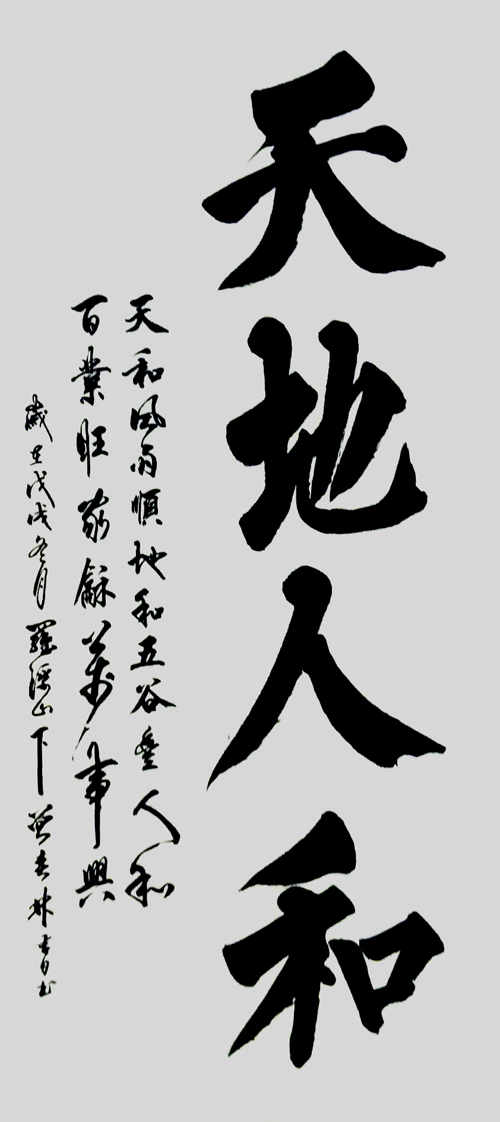 天地人和
天和風雨順地和五谷豐人和
百業旺家龢萬事興
歲在戊戌冬月羅山下林書